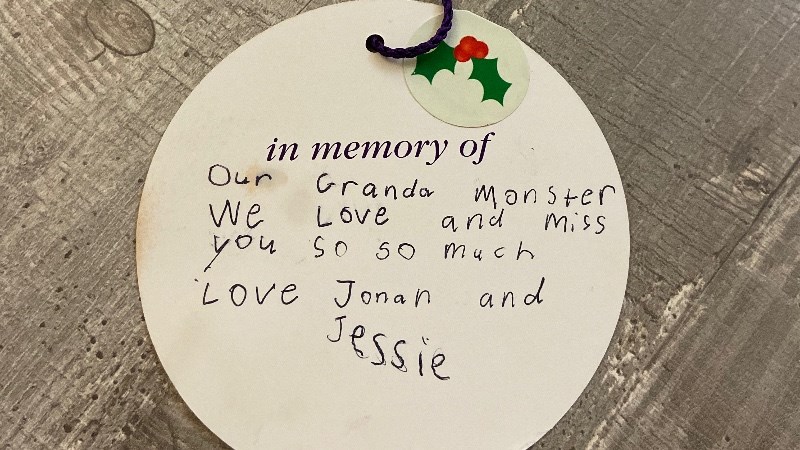 in memory of
Our Granda Monster
We Love and miss
you so so much
Love Jonah and
Jessie